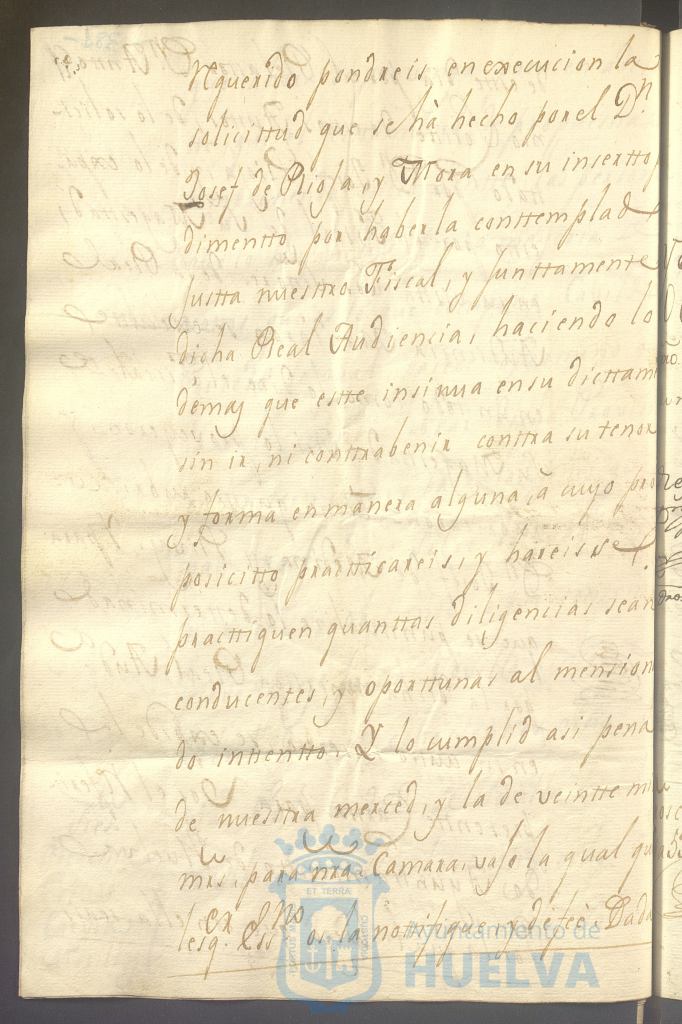 rrquerido pondreis en execucion la
solicittud que se hà hecho por el Dn
Josef de Rioja, y Mora en su insertto
dimentto por haberla conttemplad
justta nuestro Fiscal, y junttamente
dicha Real Audiencia, haciendo lo
demas que estte insinua en su dicttam
sin ir, ni conttrabenir conttra su tenor
y forma en manera alguna, à cuyo pro
posicitto practticareis, y hareis se
practtiquen quanttas diligencias sean
conducentes, y oporttunas al mension
do intientto. Y lo cumplid asi pena
de nuesttra merced, y la de veintte mil
mrs. para nra. Camara, vajo la qual qu
lesqr. Essno os la nottifique, y dè feè. Dada
ET TERRA
Ayuntamiento de
HUELVA